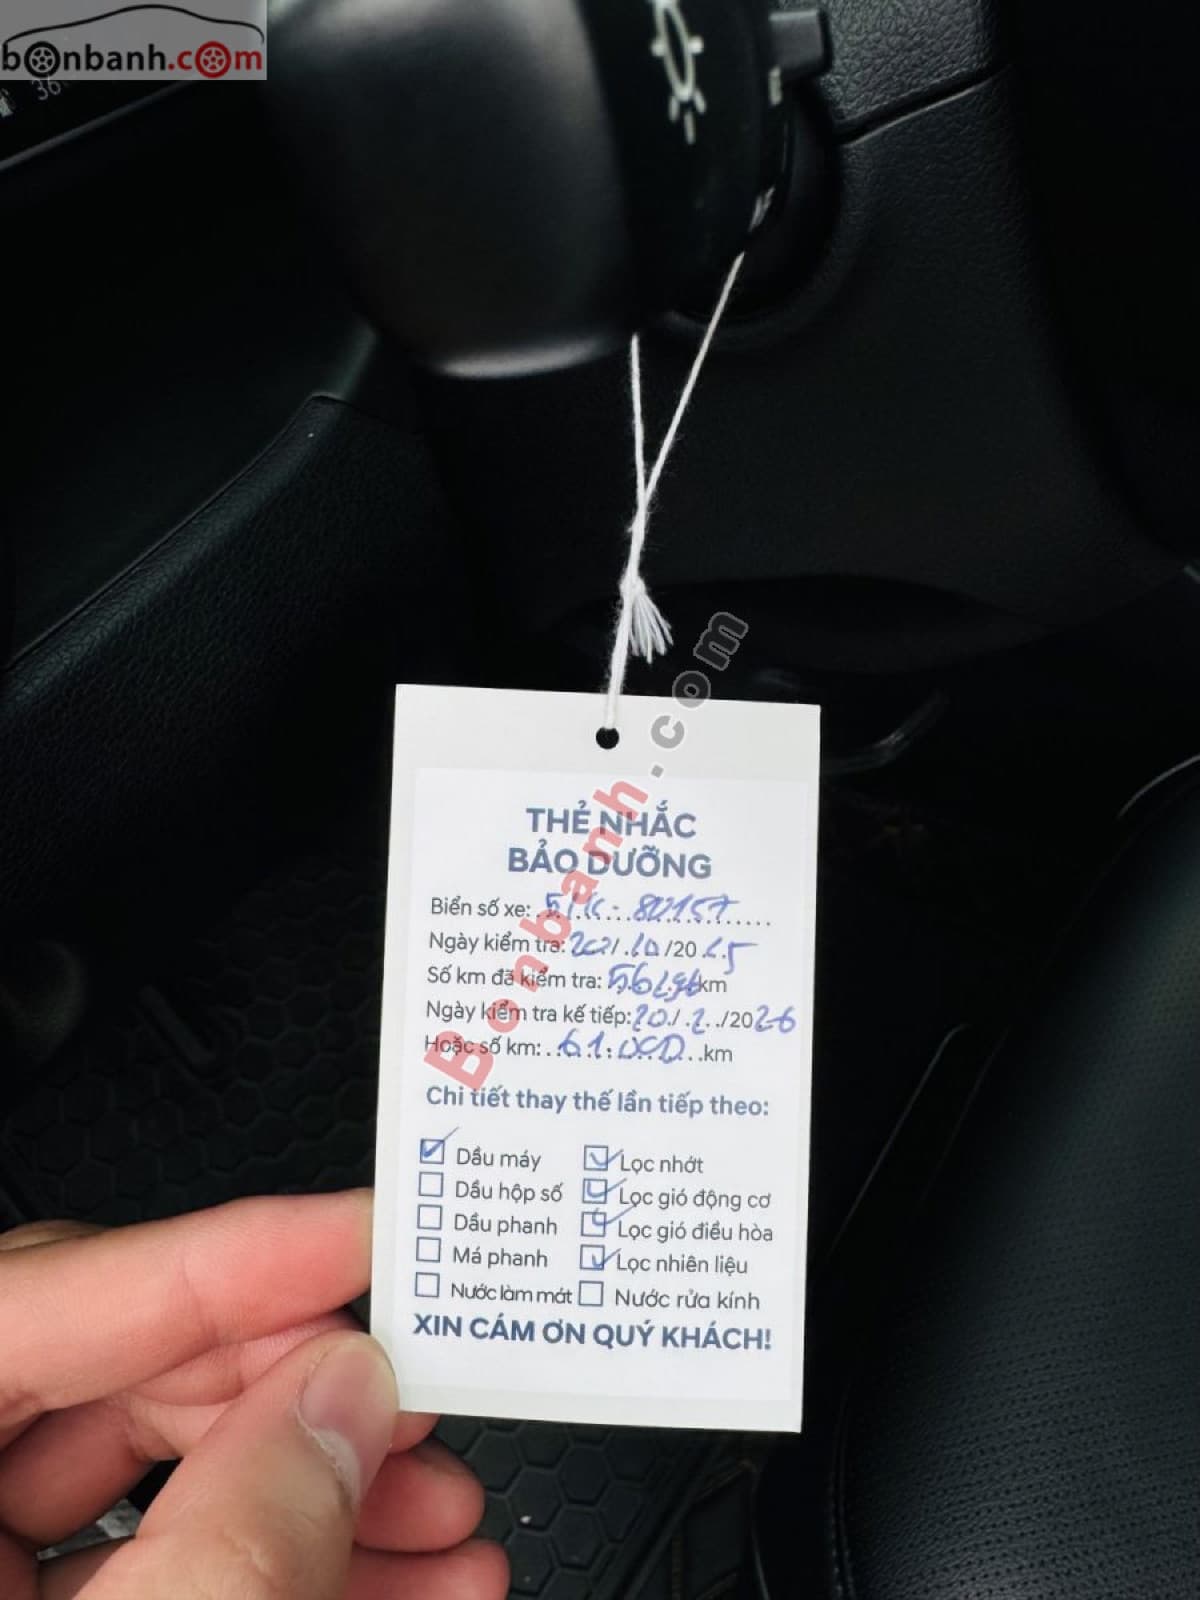 bonbanh.com
THẺ NHẮC
BẢO DƯỠNG
Biển số xe: 51K - 80157
Ngày kiểm tra: /10/2025
Số km đã kiểm tra: km
Ngày kiểm tra kế tiếp: 20/2/2026
Hoặc số km: 61.000 km
Chi tiết thay thế lần tiếp theo:
Dầu máy Lọc nhớt
Dầu hộp số Lọc gió động cơ
Dầu phanh Lọc gió điều hòa
Má phanh Lọc nhiên liệu
Nước làm mát Nước rửa kính
XIN CÁM ƠN QUÝ KHÁCH!
Bonbanh.com